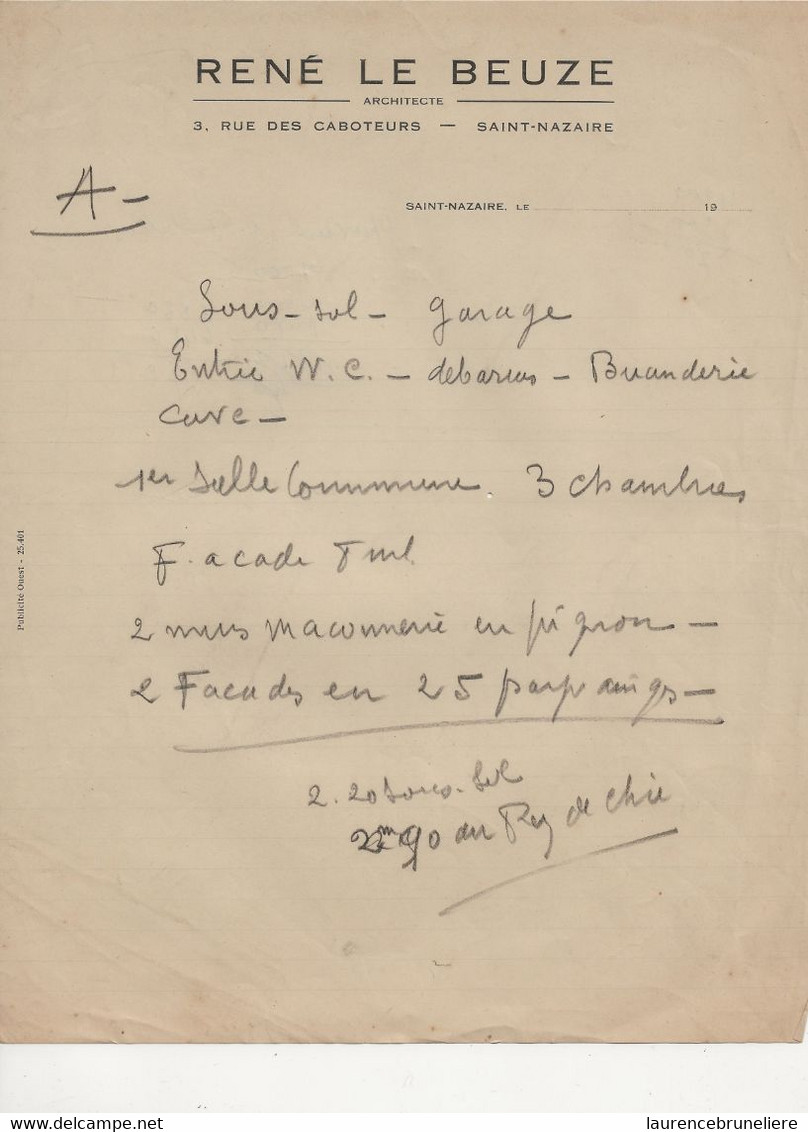 RENÉ LE BEUZE
ARCHITECTE
3, RUE DES CABOTEURS — SAINT-NAZAIRE
A-
SAINT-NAZAIRE, LE 19
Sous-sol- garage
Entrée W.C. - debarras - Buanderie
Cave-
1er Salle Commune. 3 chambres
Facade
2 murs maconnerie en pignon-
2 Facades en 25 parpaings-
2.20 sous-sol
2m90 au Rez de Ché
Publicité Ouest - 25.401
delcampe.net
laurencebruneliere